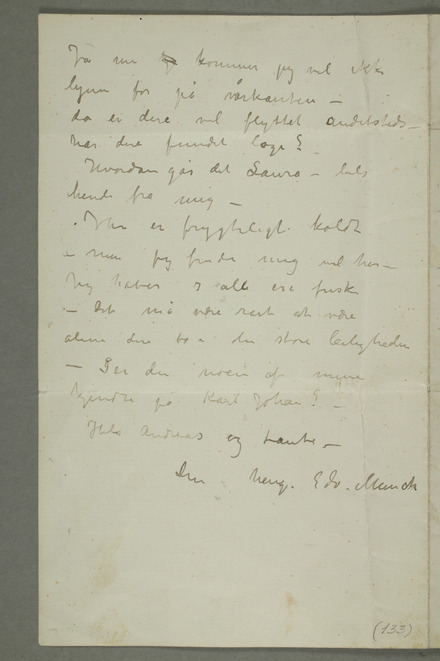 Ja nu kommer jeg vel ikke
hjem før på vårkanten –
da er dere vel flyttet andetsteds –
har dere fundet loge?
Hvordan går det Laura – hils
hende fra mig –
Her er frygteligt koldt
– men jeg finder mig vel her –
Jeg håber I alle ere friske
– Det må være rart at være
alene dere to i den store leiligheden
– Ser du noen af mine
kjendte på Karl Johan? –
Hils Andreas og tante –
Din heng. Edv. Munch
(133)